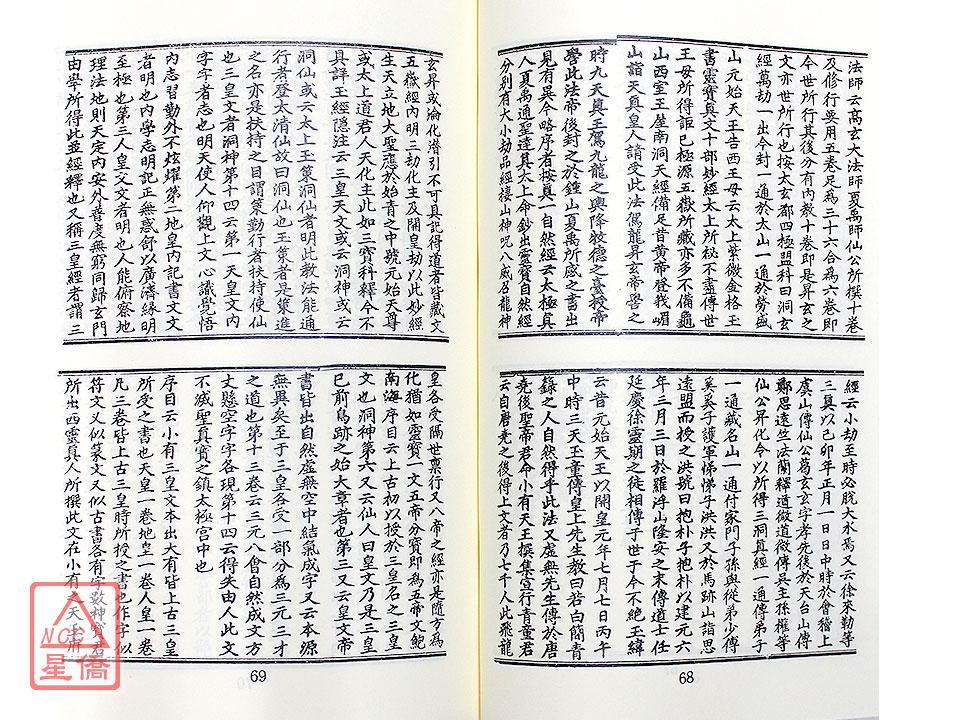 法師云高玄大法師夏禹師仙公所撰十卷
及修行要用五卷足為三十六合為六卷即
今世所行其後分有內教十卷即是昇玄之
文亦世所行也按太玄都四極盟科曰洞玄
經萬劫一出今封一通於太山一通於勞盛
山元始天王告西王母云太上紫微金格玉
書靈寶真文十部妙經太上所秘不盡傳世
王母所得詎已極源五嶽所藏亦多不備龜
山西室王屋南洞天經備足昔黃帝登峨嵋
山詣天真皇人請受此法駕龍昇玄帝嚳之
時九天真王駕九龍之輿降牧德之臺授帝
嚳此法帝後封之於鍾山夏禹所感之書出
見有異今略序者按真一自然經云太極真
人夏禹通聖達真太上命鈔出靈寶自然經
分別有大小劫品經棲山神呪八威召龍神
經云小劫至時必脫大水為又云徐來勒等
三真以己卯年正月一日日中時於會稽上
虞山傳仙公葛玄玄字孝先後於天台山傳
鄭思遠竺法蘭釋道微道微傳吳主孫權等
仙公昇化令以所得三洞真經一通傳弟子
一通藏名山一通付家門子孫與從弟少傅
奚奚子護軍悌悌子洪洪又於馬跡山詣思
遠盟而授之洪號曰抱朴子抱朴以建元六
年三月三日於羅浮山隆安之末傳道士任
延慶徐靈期之徒相傳于世于今不絕玉緯
云昔元始天王以開皇元年七月七日丙午
中時三天玉童傳皇上先生教曰若白簡青
錄之人自然得乎此法又虛無先生傳於唐
堯後聖帝君命小有天王撰集宮行青童君
云自唐堯之後得上文者乃七千人此飛龍
玄昇或淪化潛引不可具記得道者皆藏文
五嶽經內明三劫化主及開皇劫以此妙經
生天立地大聖應於始青之中號元始天尊
或太上道君人天化主此如三寶科釋今不
具詳玉經隱注云三皇天文或云洞神或云
洞仙或云太上玉策洞仙者明此教法能通
行者登太清仙故曰洞仙也玉策者是策進
之名亦是扶持之目謂策勤行者扶持使仙
也三皇文者洞神第十四云第一天皇文內
字字者志也明天使人仰觀上文心識覺悟
內志習勤外不炫耀第二地皇內記書文文
者明也內學志明記正無惑舒以廣濟緣明
至極也第三人皇文文者明也人能俯察地
理法地則天定內安外善度無窮同歸玄門
由學所得此並經釋也又稱三皇經者謂三
皇各受隔世稟行又八帝之經亦是隨方為
化猶如靈寶一文五帝分寶即為五帝文鮑
南海序目云上古初以授於三皇名之三皇
文也洞神第六又云仙人曰皇文乃是三皇
已前鳥跡之始大章者也第三又云皇文帝
書皆出自然虛無空中結氣成字又云本源
無異矣至于三皇各受一部分為三元三才
之道也第十三卷云三元八會自然成文方
丈懸空字字各現第十四云得失由人此文
不滅聖真寶之鎮太極宮中也
序目云小有三皇文本出大有皆上古三皇
所受之書也天皇一卷地皇一卷人皇一卷
凡三卷皆上古三皇時所授之書也作字似
符文又似篆文又似古書各有字數神寶君
所出西靈真人所撰此文在小有天玉府
69
68
NCC
星僑